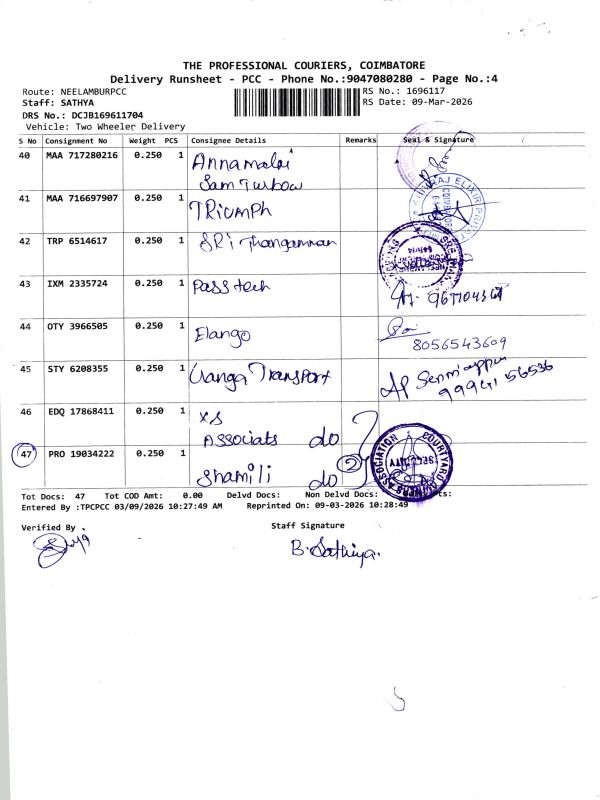 THE PROFESSIONAL COURIERS, COIMBATORE
Delivery Runsheet - PCC - Phone No.:9047080280 - Page No.:4
Route: NEELAMBURPCC
RS No.: 1696117
Staff: SATHYA
RS Date: 09-Mar-2026
DRS No.: DCJB169611704
Vehicle: Two Wheeler Delivery
S No Consignment No Weight PCS Consignee Details Remarks Seal & Signature
40 MAA 717280216 0.250 1 Annamalai
Sam Turbow
41 MAA 716697907 0.250 1 TRiumph
42 TRP 6514617 0.250 1 SRi Thangamman
43 IXM 2335724 0.250 1 Pass tech
44 OTY 3966505 0.250 1 Elango
8056543609
45 STY 6208355 0.250 1 Transport
99941 56536
46 EDQ 17868411 0.250 1 XS
Associats do
47 PRO 19034222 0.250 1 Shamili do 2
COURTYARD OWNERS ASSOCIATION
SECURITY
Tot Docs: 47 Tot COD Amt: 0.00 Delvd Docs: Non Delvd Docs:
Entered By :TPCPCC 03/09/2026 10:27:49 AM Reprinted On: 09-03-2026 10:28:49
Verified By .
Staff Signature
B. Sathiya.